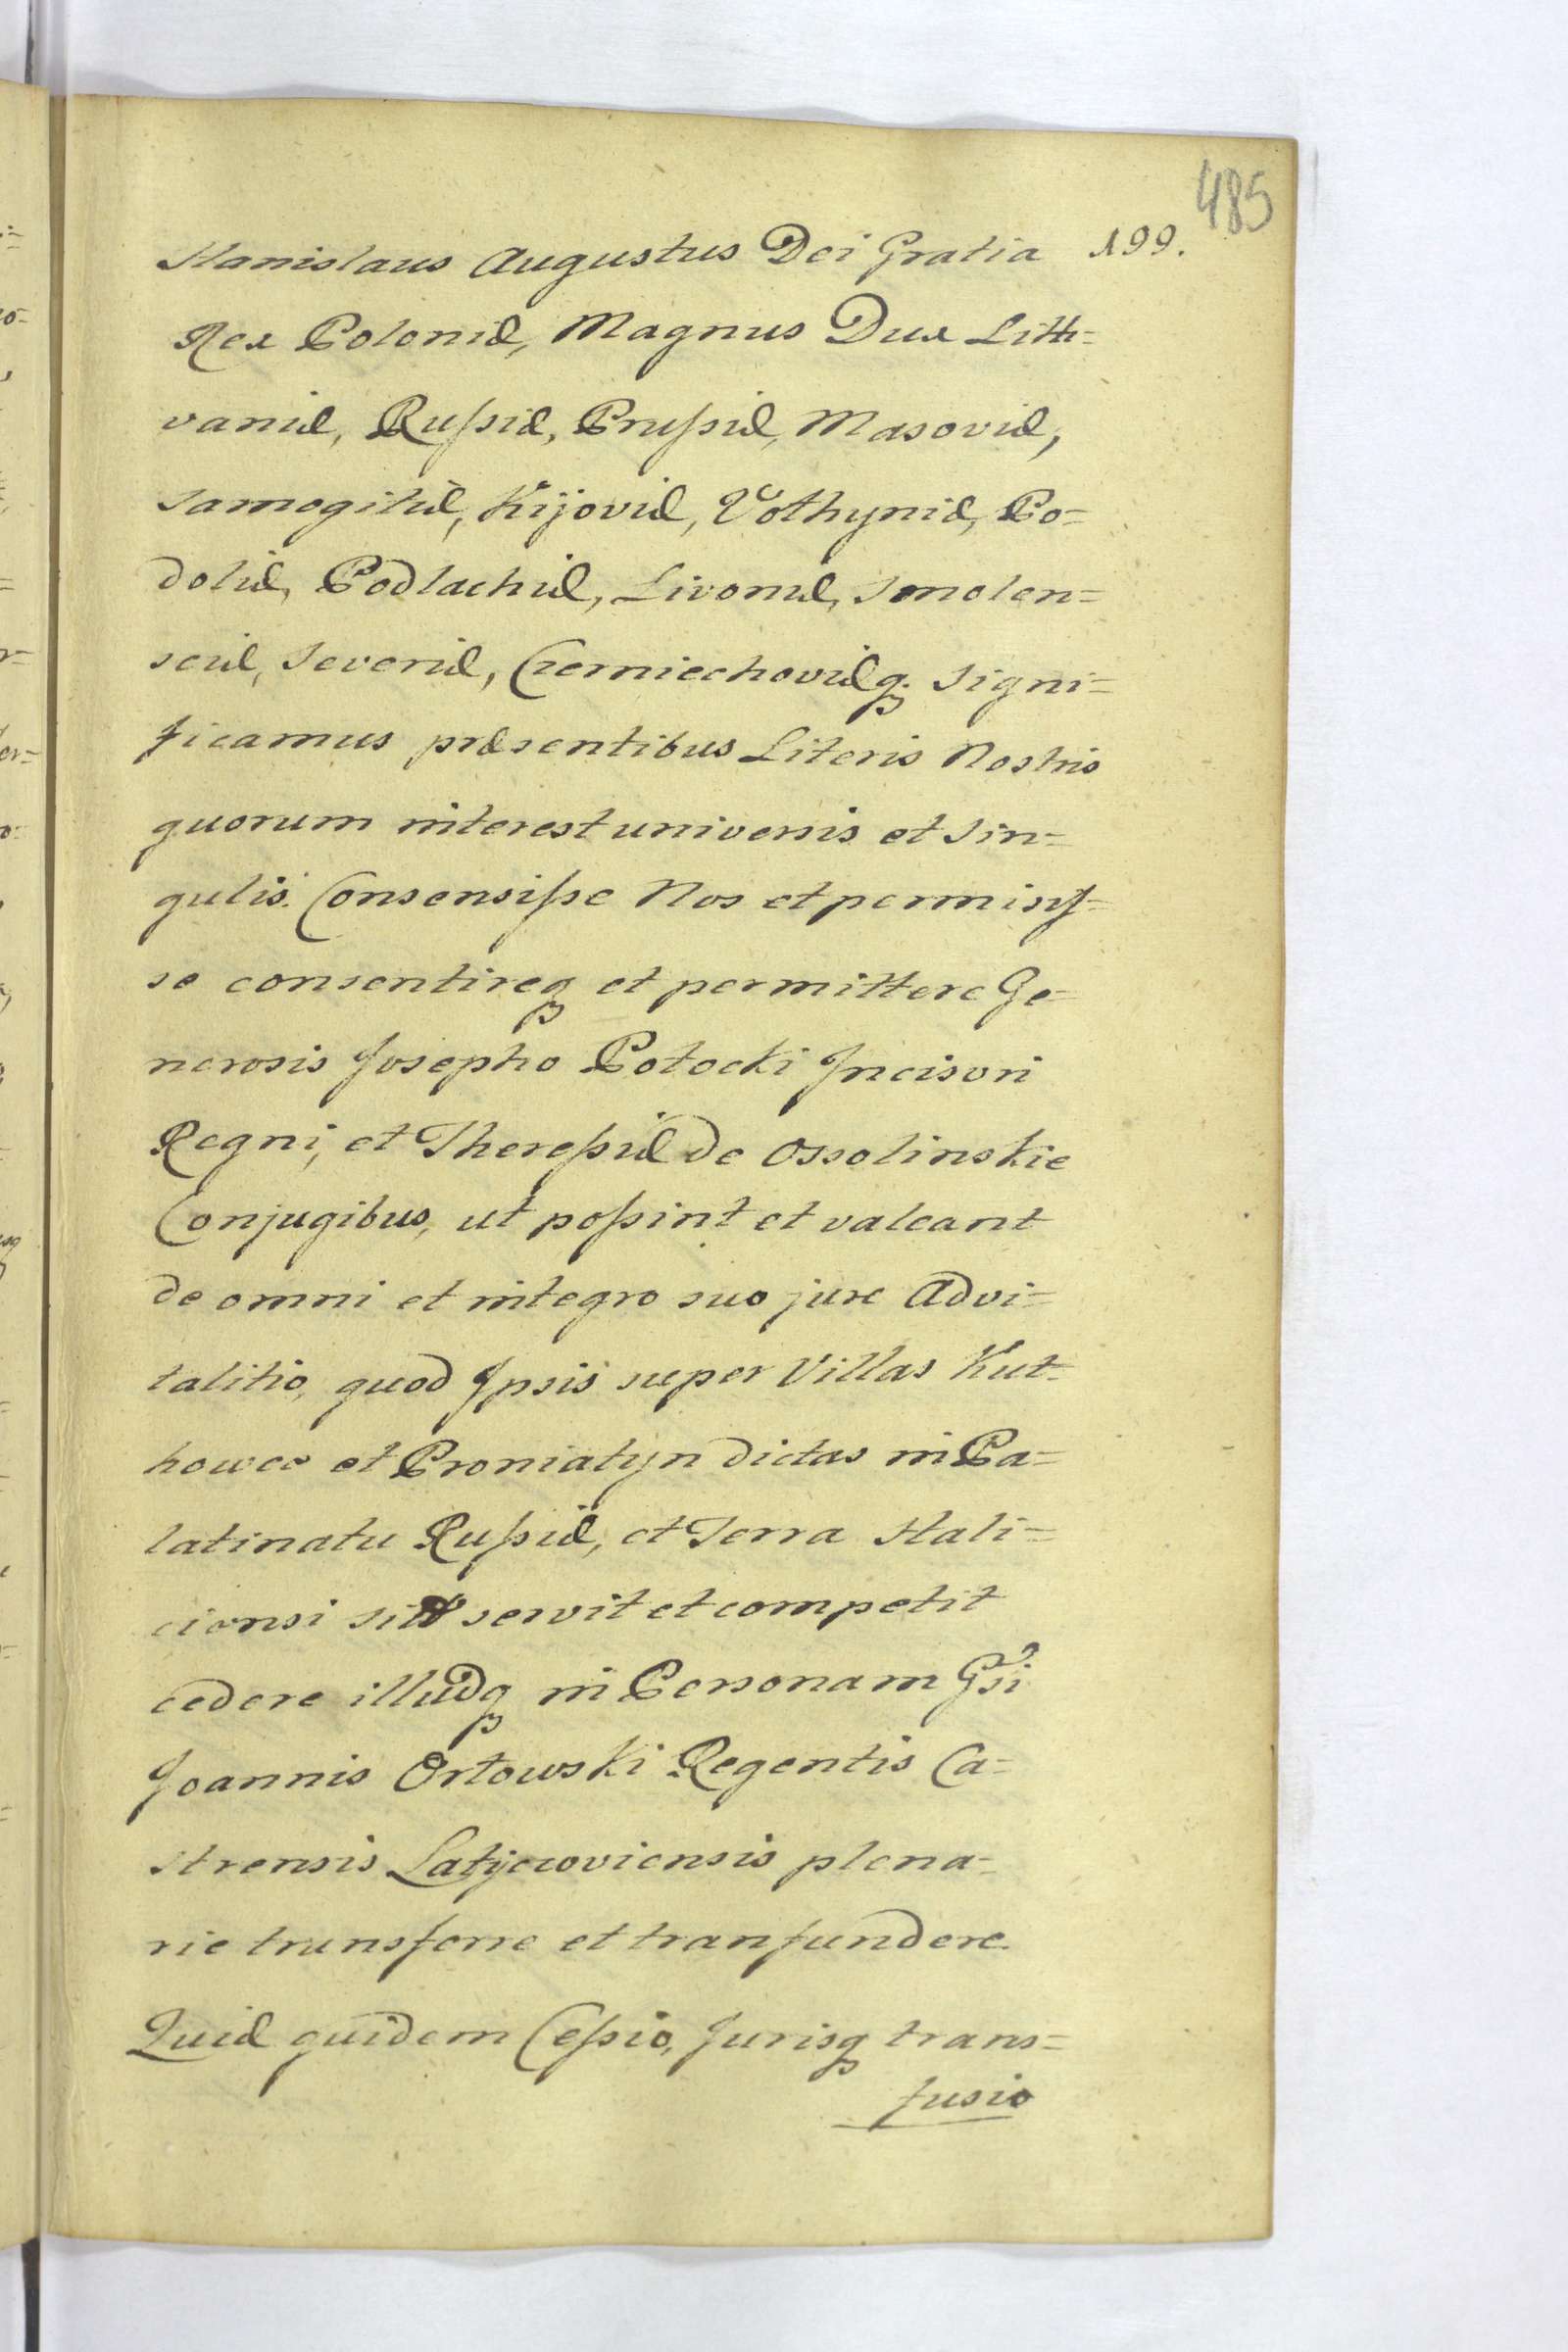 485
Stanislaus Augustus Dei Gratia 199.
Rex Poloniæ, Magnus Dux Litth=
vaniæ, Rußiæ, Prußiæ, Masoviæ,
Samogitiæ, Kijoviæ, Volhyniæ, Po=
doliæ, Podlachiæ, Livoniæ, Smolen=
sciæ, Severiæ, Czerniechoviæq. Signi=
ficamus præsentibus Literis Nostris
quorum interest universis et Sin=
gulis. Consensiße Nos et permisis=
se consentireq et permittere Ge=
nerosis Josepho Potocki Incisori
Regni, et Thereßiæ de Ossolinskie
Conjugibus, ut poßint et valeant
de omni et integro suo jure Advi=
talitio, quod Ipsis super Villas Kut=
howce et Proniatyn dictas in Pa=
latinatu Rußiæ, et Terra Hali=
ciensi servit et competit
cedere illudq in Personam Gsi
Joannis Orłowski Regentis Ca=
strensis Latyczoviensis plena=
rie transferre et transfundere.
Quiæ quidem Ceßio, Jurisq trans=
fusio